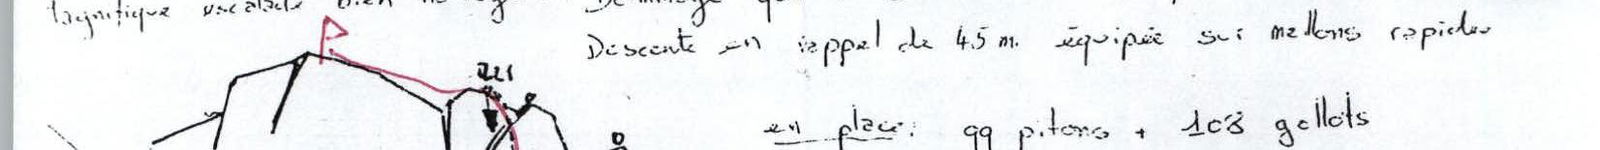 magnifique escalade bien
Descente en rappel de 45 m. équipée sur maillons rapides
R21
en place: 99 pitons + 108 gollots